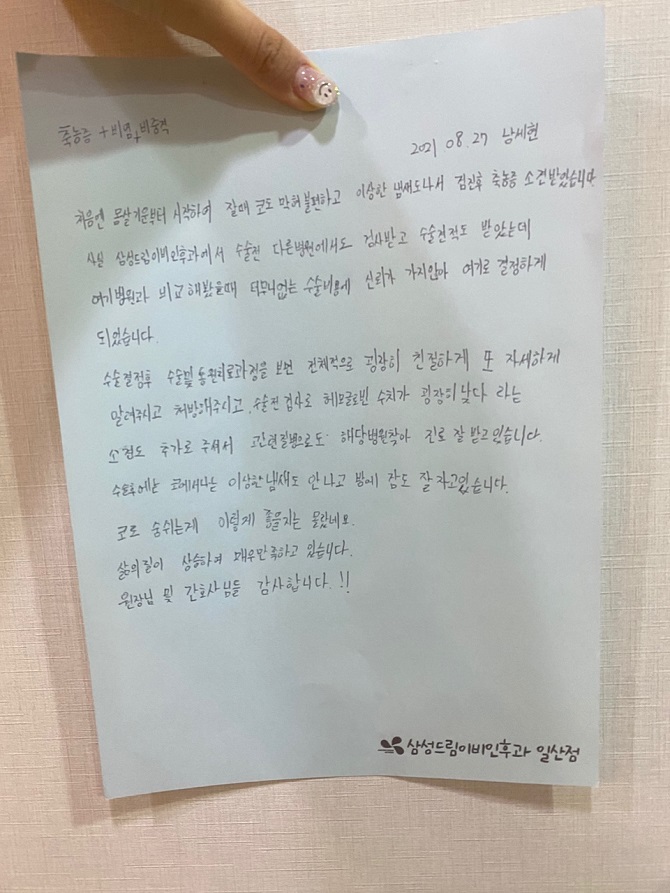 축농증 + 비염 + 비중격
2021 08. 27 남세현
처음엔 몸살기운부터 시작하여 잘때 코도 막혀 불편하고 이상한 냄새도나서 검진후 축농증 소견받았습니다
사실 삼성드림이비인후과에서 수술전 다른병원에서도 검사받고 수술견적도 받았는데
여기병원과 비교해봤을때 터무니없는 수술비용에 신뢰가 가지않아 여기로 결정하게
되었습니다.
수술결정후 수술및 통원치료과정을 보면 전체적으로 굉장히 친절하게 또 자세하게
알려주시고 처방해주시고, 수술전 검사로 헤모글로빈 수치가 굉장히 낮다 라는
소견도 추가로 주셔서 그관련질병으로도 해당병원찾아 진료 잘 받고있습니다.
수술후에는 코에서나는 이상한냄새도 안나고 밤에 잠도 잘자고있습니다.
코로 숨쉬는게 이렇게 좋을지는 몰랐네요.
삶의질이 상승하여 매우만족하고 있습니다.
원장님 및 간호사님들 감사합니다.!!
삼성드림이비인후과 일산점